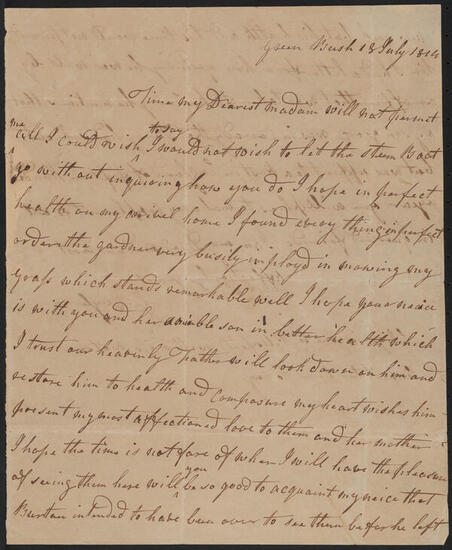 Green Bush 18 July 1814
Time my Dearest madam will not permit
me
all I could wish to say I would not wish to let the Stem Boat
go with out inquiring how you do I hope in perfect
health on my arivel home I found every thing in perfect
order the gardner very busily imployd in mowing my
grass which stands remarkable well I hope your neice
is with you and her amible son in better health which
I trust our heavenly Father will look down on him and
restore him to health and Composure my heart wishes him
present my most affectioned love to them and her mother
I hope the time is not fare of when I will have the pleasure
of seeing them here will you be so good to acquaint my neice that
Burtan intended to have been over to see them befor he left